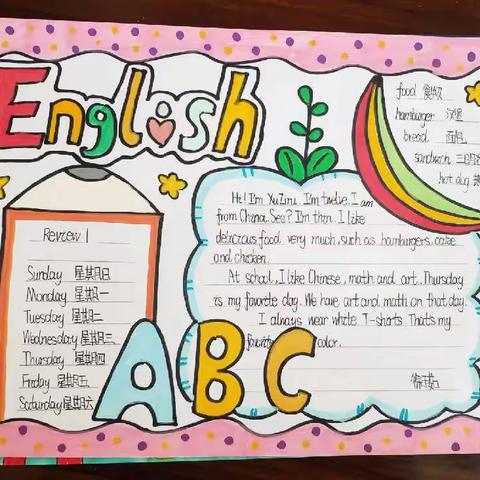 English
food 食物
hamburger 汉堡
bread 面包
sandwich 三明治
hot dog 热
Review 1
Sunday 星期日
Monday 星期一
Tuesday 星期二
Wednesday 星期三
Thursday 星期四
Friday 星期五
Saturday 星期六
I'm twelve. I am
from China. See? I'm thin. I like
delicious food very much, such as hamburgers, cake
and chicken.
At school, I like Chinese, math and art. Thursday
is my favorite day. We have art and math on that day.
I always wear white T-shirts. That's my
favorite color.
ABC